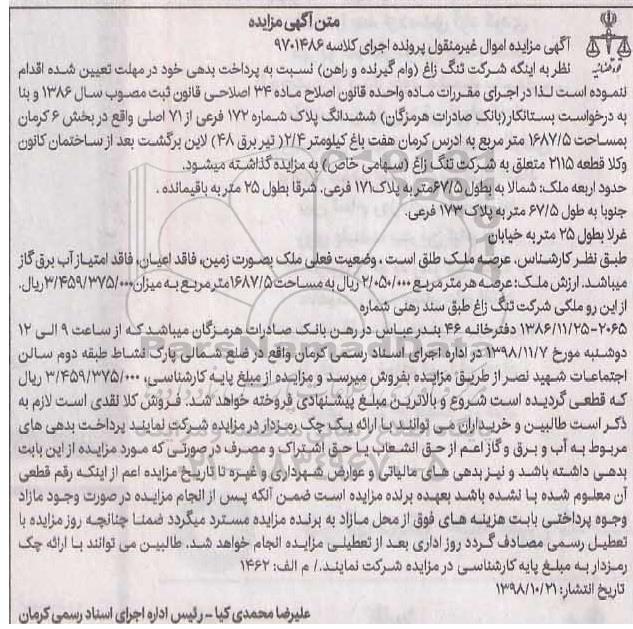 متن آگهی مزایده
آگهی مزایده اموال غیرمنقول پرونده اجرای کلاسه ۹۷۰۱۴۸۶
نظر به اینکه شرکت تنگ زاغ (وام گیرنده و راهن) نسبت به پرداخت بدهی خود در مهلت تعیین شده اقدام
ننموده است لذا در اجرای مقررات ماده واحده قانون اصلاح ماده ۳۴ اصلاحی قانون ثبت مصوب سال ۱۳۸۶ و بنا
به درخواست بستانکار(بانک صادرات هرمزگان) ششدانگ پلاک شماره ۱۷۲ فرعی از ۷۱ اصلی واقع در بخش ۶ کرمان
بمساحت ۱۶۸۷/۵ متر مربع به ادرس کرمان هفت باغ کیلومتر ۲/۴( تیر برق ۴۸) لاین برگشت بعد از ساختمان کانون
وکلا قطعه ۲۱۱۵ متعلق به شرکت تنگ زاغ (سهامی خاص) به مزایده گذاشته میشود.
حدود اربعه ملک: شمالا به بطول ۶۷/۵متر به پلاک۱۷۱ فرعی. شرقا بطول ۲۵ متر به باقیمانده .
جنوبا به طول ۶۷/۵ متر به پلاک ۱۷۳ فرعی.
غربا بطول ۲۵ متر به خیابان
طبق نظر کارشناس. عرصه ملک طلق است ، وضعیت فعلی ملک بصورت زمین، فاقد اعیان، فاقد امتیاز آب برق گاز
میباشد. ارزش ملک: عرصه هر متر مربع ۲/۰۵۰/۰۰۰ ریال به مساحت ۱۶۸۷/۵متر مربع به میزان۳/۴۵۹/۳۷۵/۰۰۰ریال.
از این رو ملکی شرکت تنگ زاغ طبق سند رهنی شماره
۲۰۶۵-۱۳۸۶/۱۱/۲۵ دفترخانه ۴۶ بندر عباس در رهن بانک صادرات هرمزگان میباشد که از ساعت ۹ الی ۱۲
دوشنبه مورخ ۱۳۹۸/۱۱/۷ در اداره اجرای اسناد رسمی کرمان واقع در ضلع شمالی پارک نشاط طبقه دوم سالن
اجتماعات شهید نصر از طریق مزایده بفروش میرسد و مزایده از مبلغ پایه کارشناسی، ۳/۴۵۹/۳۷۵/۰۰۰ ریال
که قطعی گردیده است شروع و بالاترین مبلغ پیشنهادی فروخته خواهد شد. فروش کلا نقدی است لازم به
ذکر است طالبین و خریداران می توانند با ارائه یک چک رمزدار در مزایده شرکت نمایند پرداخت بدهی های
مربوط به آب و برق و گاز اعم از حق انشعاب یا حق اشتراک و مصرف در صورتی که مورد مزایده از این بابت
بدهی داشته باشد و نیز بدهی های مالیاتی و عوارض شهرداری و غیره تا تاریخ مزایده اعم از اینکه رقم قطعی
آن معلوم شده یا نشده باشد بعهده برنده مزایده است ضمن آنکه پس از انجام مزایده در صورت وجود مازاد
وجوه پرداختی بابت هزینه های فوق از محل مازاد به برنده مزایده مسترد میگردد ضمنا چنانچه روز مزایده با
تعطیل رسمی مصادف گردد روز اداری بعد از تعطیلی مزایده انجام خواهد شد. طالبین می توانند با ارائه چک
رمزدار به مبلغ پایه کارشناسی در مزایده شرکت نمایند./ م الف: ۱۴۶۲
تاریخ انتشار: ۱۳۹۸/۱۰/۲۱
علیرضا محمدی کیا – رئیس اداره اجرای اسناد رسمی کرمان
ParsNamadData